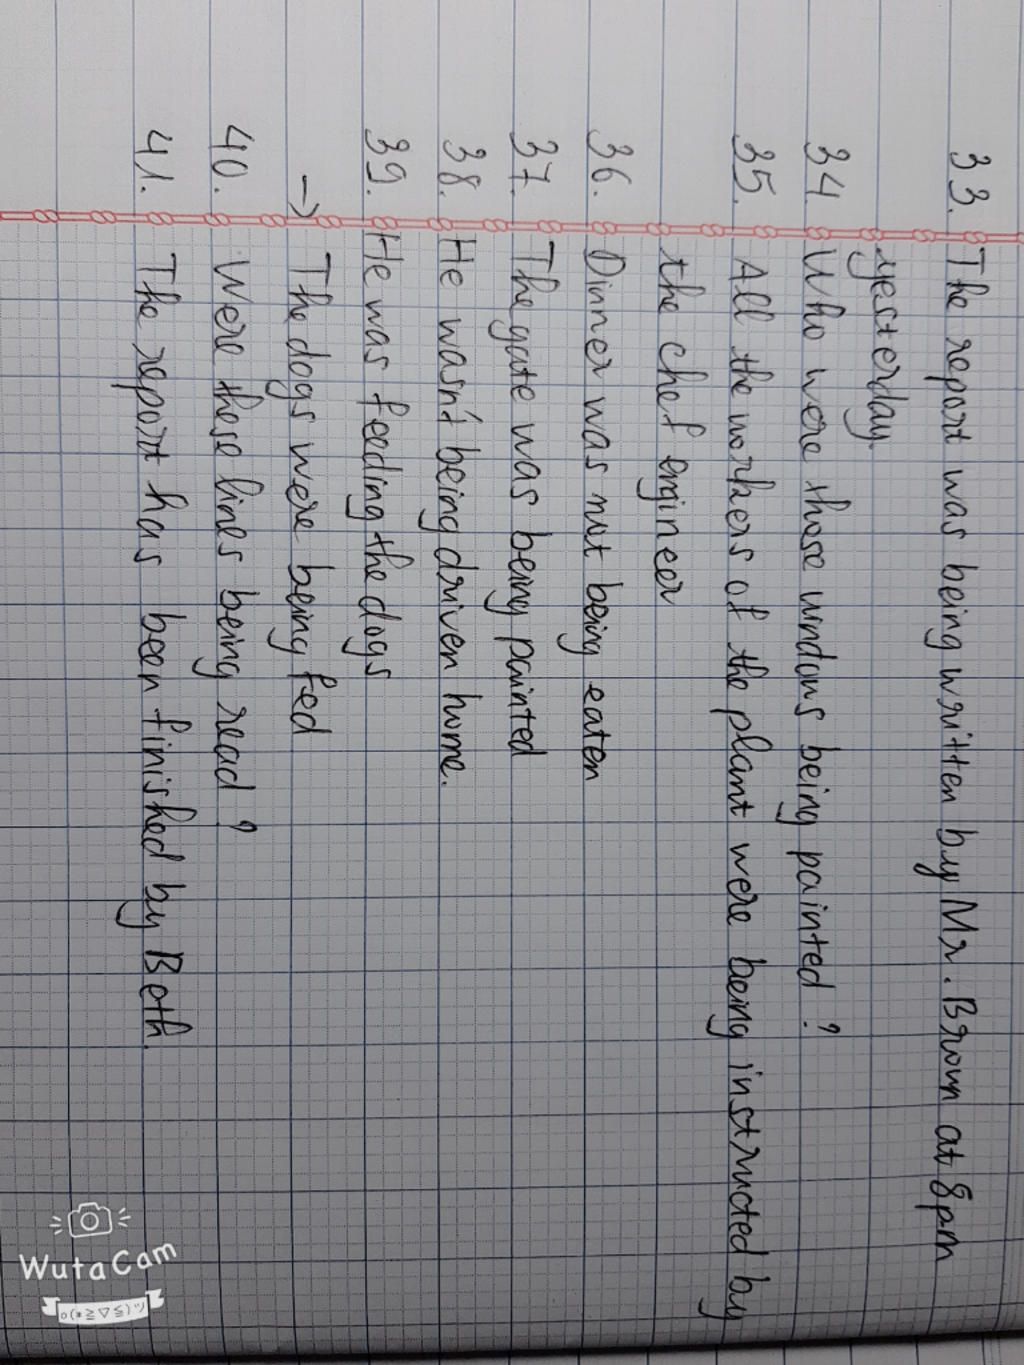 33. The report was being written by Mr. Brown at 8pm
yesterday
34. Who were those windows being painted ?
35. All the workers of the plant were being instructed by
the chef engineer
36. Dinner was not being eaten
37. The gate was being painted
38. He wasn't being driven home.
39. He was feeding the dogs
→ The dogs were being fed
40. Were these lines being read ?
41. The report has been finished by Beth.
WutaCam
o(*≧▽≦)ツ